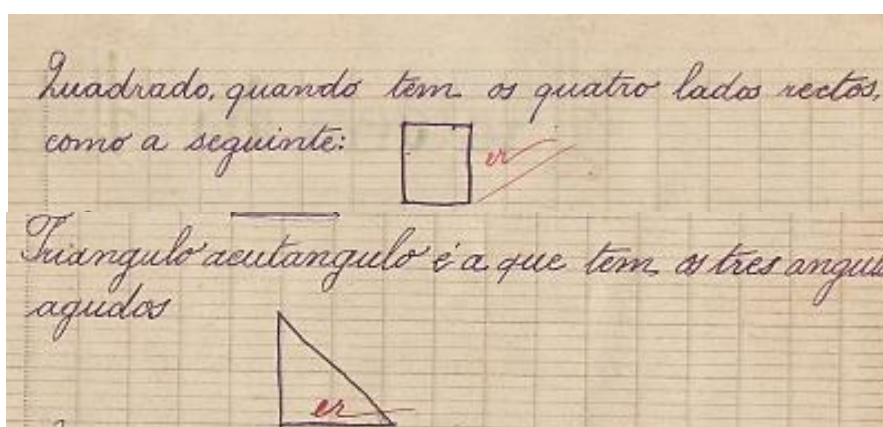 Quadrado, quando tem os quatro lados rectos,
como a seguinte:
er
Triangulo acutangulo é a que tem os tres angul
agudos
er